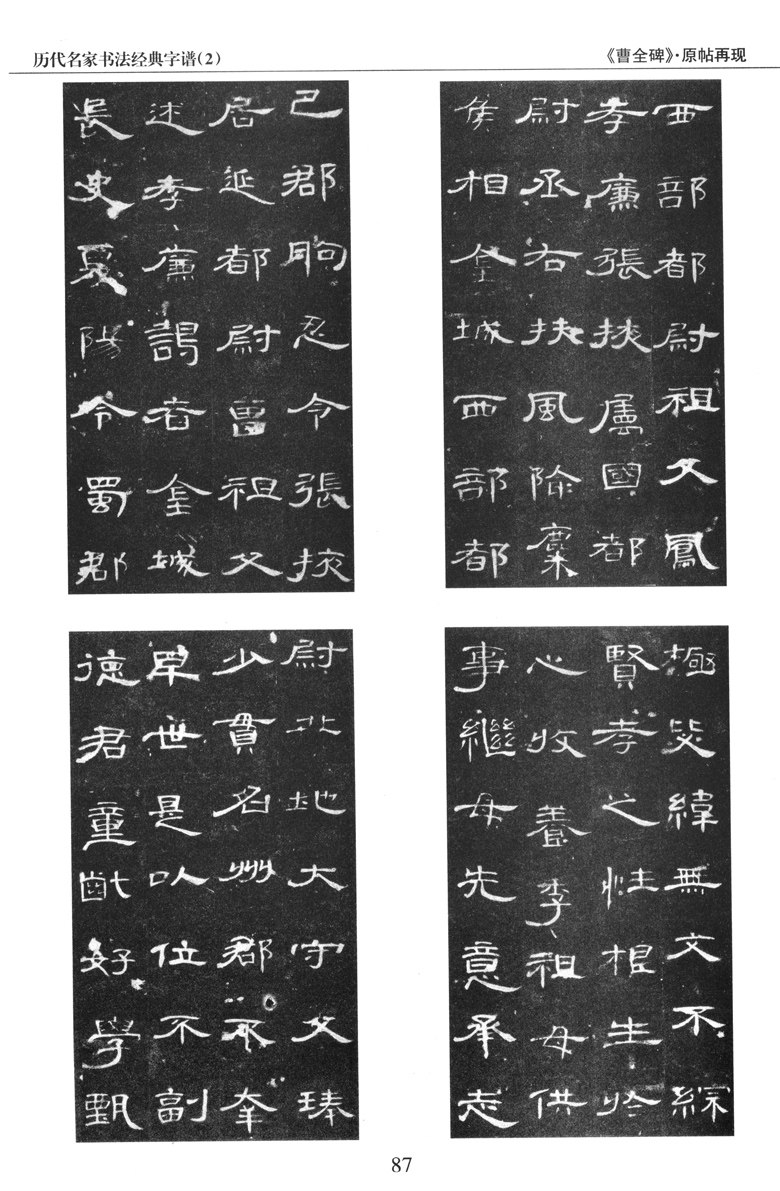 历代名家书法经典字谱(2)
《曹全碑》·原帖再现
巴郡朐忍令張掖
居延都尉曾祖父
述孝廉謁者金城
長史夏陽令蜀郡
西部都尉祖父鳳
孝廉張掖屬國都
尉丞右扶風隃麋
侯相金城西部都
尉北地大守父琫
少貫名州郡不幸
早世是以位不副
德君童齔好學甄
極毖緯無文不綜
賢孝之性根生於
心收養季祖母供
事繼母先意承志
87